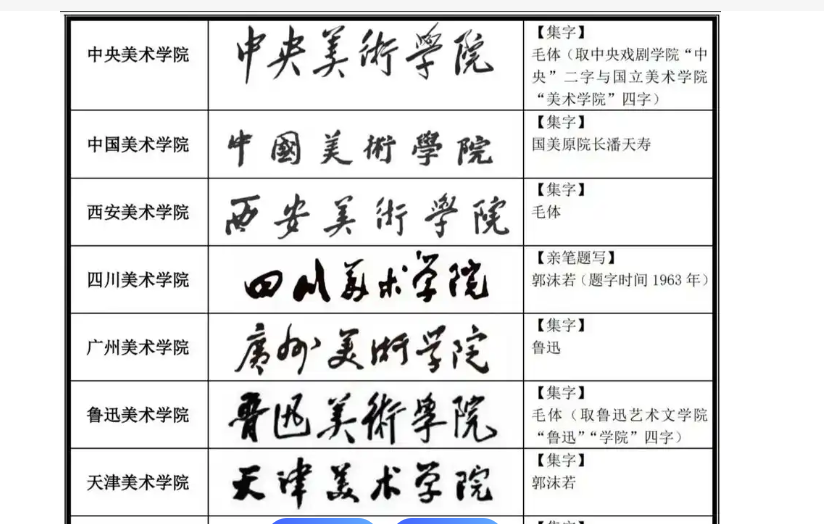 中央美术学院
中央美術學院
【集字】
毛体（取中央戏剧学院“中
央”二字与国立美术学院
“美术学院”四字）
中国美术学院
中國美術學院
【集字】
国美原院长潘天寿
西安美术学院
西安美術學院
【集字】
毛体
四川美术学院
四川美术学院
【亲笔题写】
郭沫若（题字时间 1963 年）
广州美术学院
廣州美術学院
【集字】
鲁迅
鲁迅美术学院
魯迅美術學院
【集字】
毛体（取鲁迅艺术文学院
“鲁迅”“学院”四字）
天津美术学院
天津美术学院
【集字】
郭沫若